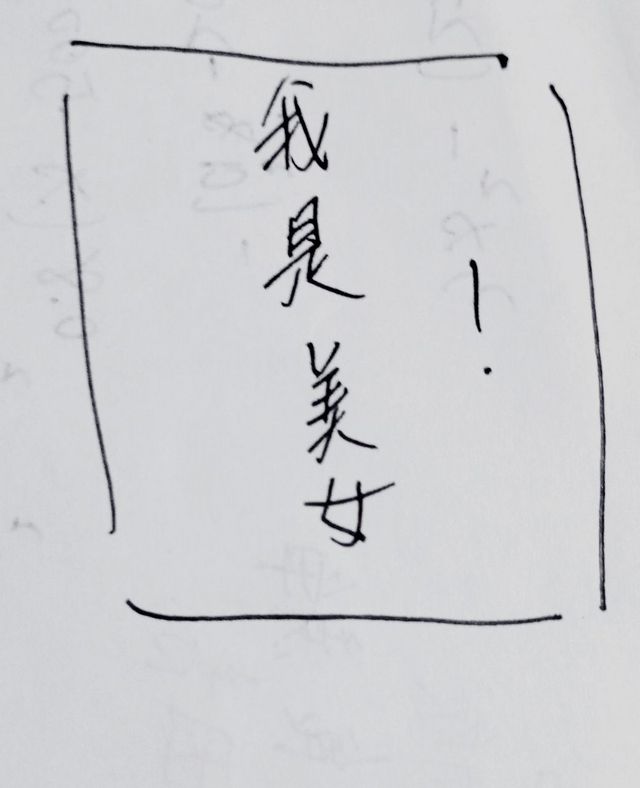 我是美女
！